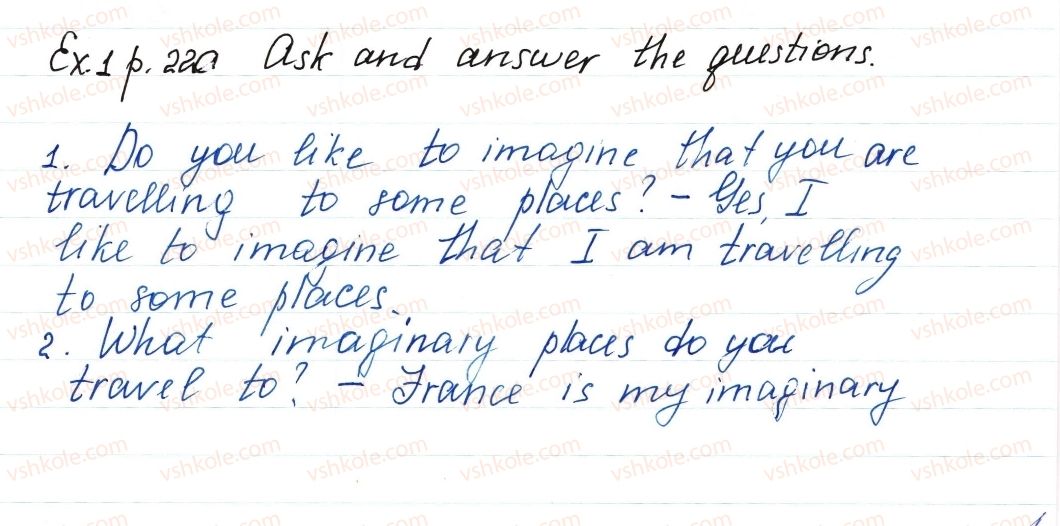 Ex.1 p.220 Ask and answer the questions.
1. Do you like to imagine that you are
travelling to some places? – Yes, I
like to imagine that I am travelling
to some places.
2. What imaginary places do you
travel to? – France is my imaginary
vshkole.com